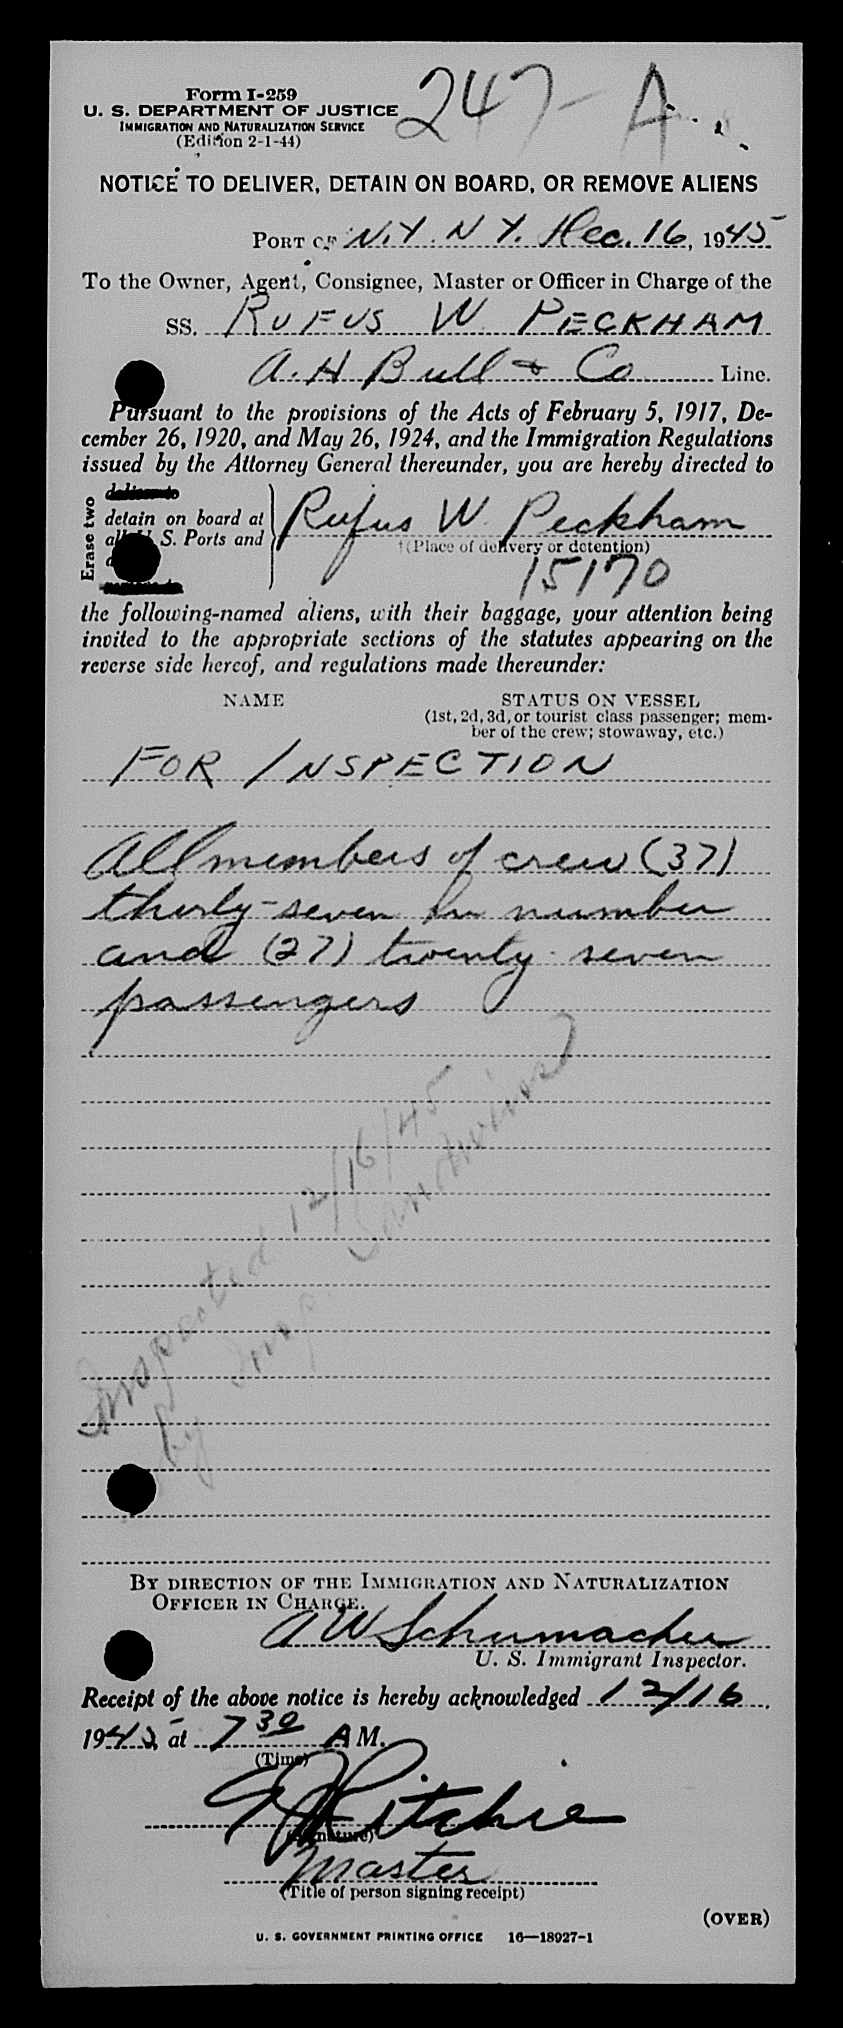 Form I-259
U. S. DEPARTMENT OF JUSTICE
IMMIGRATION AND NATURALIZATION SERVICE
(Edition 2-1-44)
247-A
NOTICE TO DELIVER, DETAIN ON BOARD, OR REMOVE ALIENS
PORT OF N.Y. N Y. Dec. 16, 1945
To the Owner, Agent, Consignee, Master or Officer in Charge of the
SS. RUFUS W PECKHAM
A. H Bull & Co Line.
Pursuant to the provisions of the Acts of February 5, 1917, De-
cember 26, 1920, and May 26, 1924, and the Immigration Regulations
issued by the Attorney General thereunder, you are hereby directed to
Erase two
detain on board at
all U. S. Ports and
Rufus W. Peckham
(Place of delivery or detention)
15170
the following-named aliens, with their baggage, your attention being
invited to the appropriate sections of the statutes appearing on the
reverse side hereof, and regulations made thereunder:
NAME STATUS ON VESSEL
(1st, 2d, 3d, or tourist class passenger; mem-
ber of the crew; stowaway, etc.)
FOR INSPECTION
All members of crew (37)
thirty-seven in number
and (27) twenty-seven
passengers
Inspected 12/16/45
by Insp.
BY DIRECTION OF THE IMMIGRATION AND NATURALIZATION
OFFICER IN CHARGE.
A W Schumacher
U. S. Immigrant Inspector.
Receipt of the above notice is hereby acknowledged 12/16,
1945, at 7 30 A M.
(Time)
Ritchie
(Signature)
Master
(Title of person signing receipt)
(OVER)
U. S. GOVERNMENT PRINTING OFFICE 16—18927-1